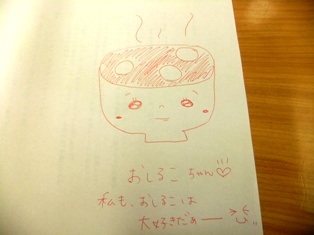 おしるこ ちゃん♡
私も、おしるこは
大好きだぁー